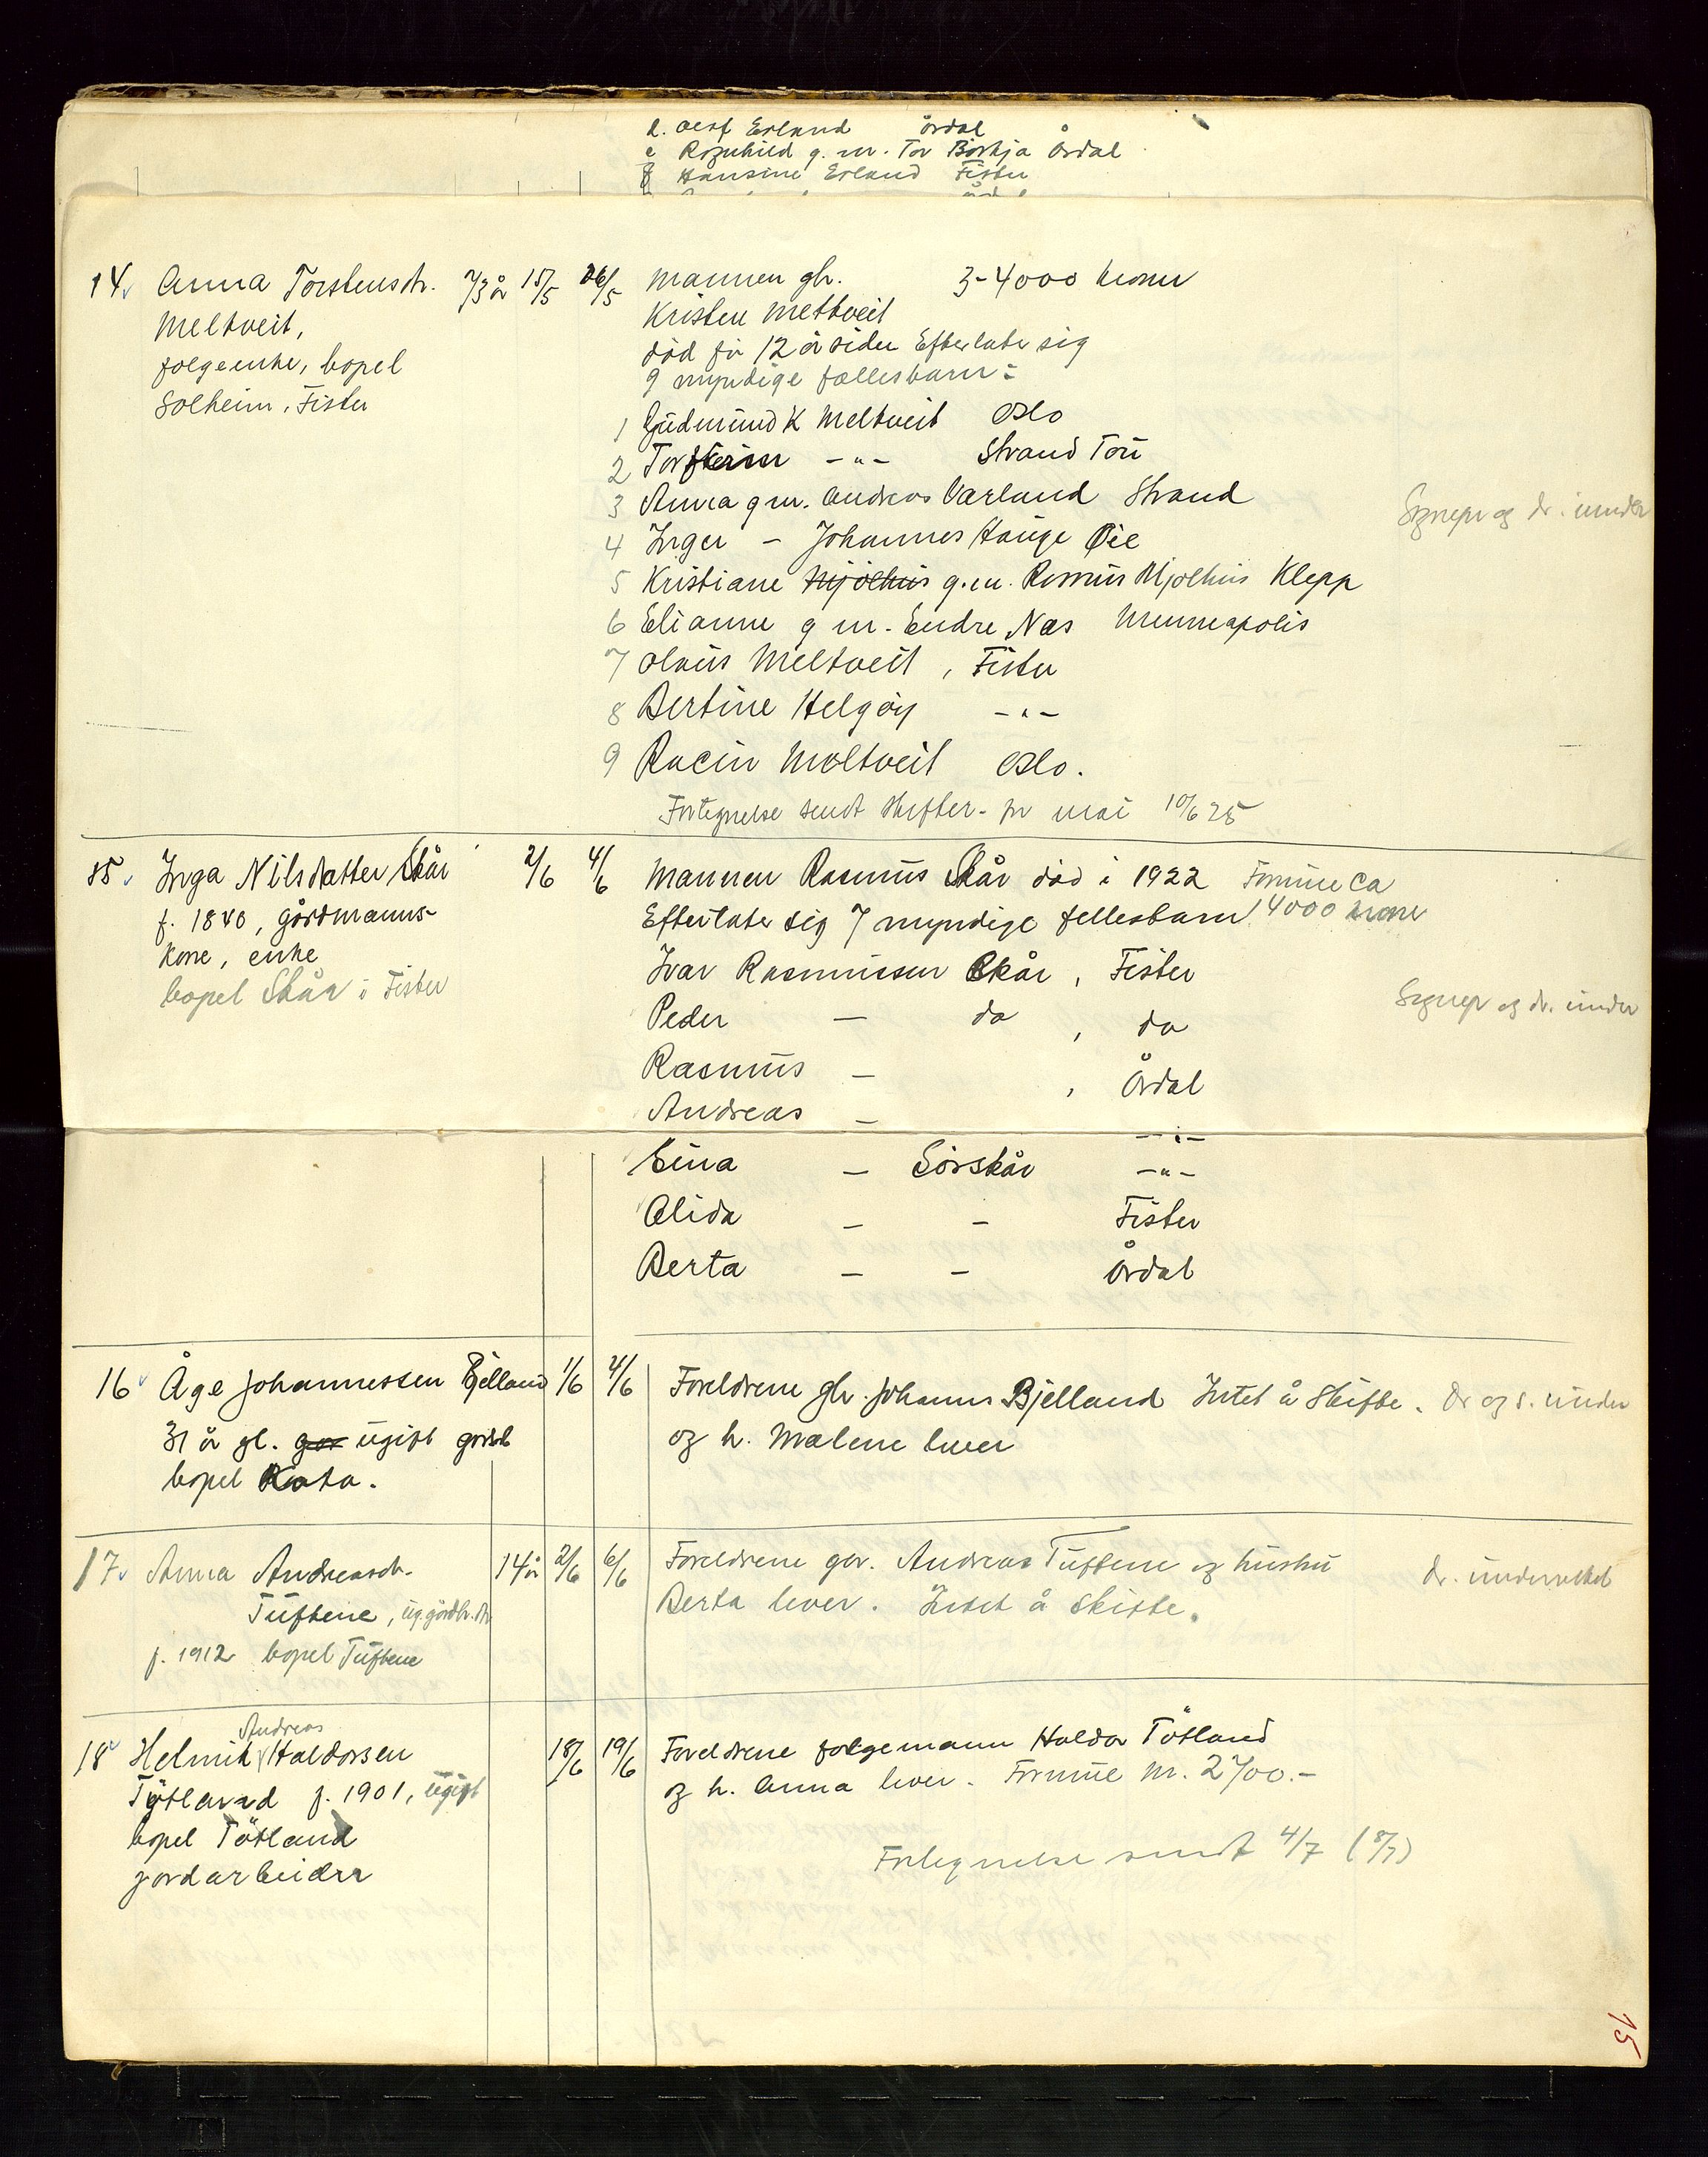 d. Olaf Erland Årdal
e Ragnhild g. m. Tor Børkja Årdal
f Hansine Erland Fister
14. Anna Torstensdtr. 73 år 15/5 26/5 Mannen gbr. 3-4000 kroner
Meltveit, Kristen Meltveit
folgeenke, bopel død for 12 år siden Efterlater sig
Solheim, Fister 9 myndige fællesbarn:
1 Gudmund K Meltveit Oslo
2 Torstein -"- Strand Tou
3 Anna g m. Andreas Varland Strand
Signepr og dr. under
4 Inger - Johannes Hauge Øie
5 Kristiane Mjølhus g.m. Rasmus Mjølhus Klepp
6 Elianne g m. Endre Næs Minneapolis
7 Olaus Meltveit, Fister
8 Bertine Helgøy -"-
9 Racin Meltveit Oslo.
Fortegnelse sendt skifter. for mai 10/6 25
15. Inga Nilsdatter Skår 2/6 4/6 Mannen Rasmus Skår død i 1922 Formue ca
f. 1840, gårdmanns- Efterlater sig 7 myndige fellesbarn. 14000 kroner
kone, enke Ivar Rasmussen Skår, Fister
bopel Skår i Fister Signepr og dr. under
Peder — do, do
Rasmus —, Årdal
Andreas — -"-
Eina — Sørskår -"-
Alida — - Fister
Berta — - Årdal
16 Åge Johannessen Bjelland 1/6 4/6 Foreldrene gbr. Johannes Bjelland Intet å skifte. Dr og s. under
31 år gl. gar ugift gårdb og h. Malene lever
bopel Rata.
17. Anna Andreasdr. 14 år 2/6 6/6 Foreldrene gbr. Andreas Tuftene og hustru dr. underrettet
Tuftene, ug. gårdbr. dtr Berta lever. Intet å skifte.
f. 1912 bopel Tuftene
Andreas
18 Helmik Haldorsen 18/6 19/6 Foreldrene folgemann Haldor Tøtland
Tøtland f. 1901, ugift og h. Anna lever. Formue kr. 2700.-
bopel Tøtland
jordarbeider Fortegnelse sendt 4/7 (8/7)
15